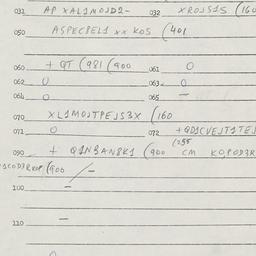 031 AP XAL1MOJD2- 032 XROJS1S (160
050 ASPECPEL1 XX KOS (401
060 + QT (981 (900 061 O
062 O 063 O
064 O 065 —
070 XL1MOJTPEJS3X (160
071 O 072 +QD1CVEJT1TEJ
(255
090 + Q1N3AN8K1 (900 CM KOPOD3R
(900 —
100 —
110 —